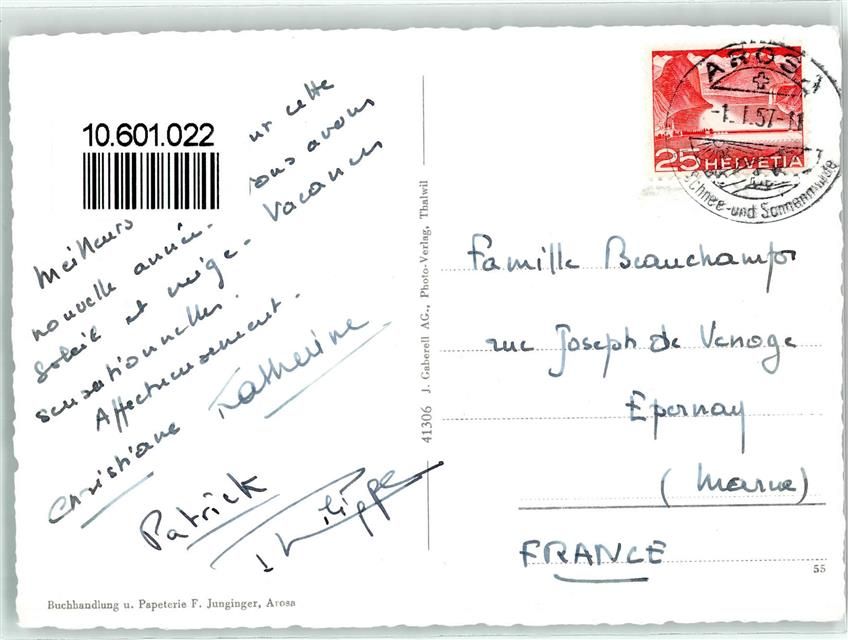 10.601.022
Meilleurs
ur cette
nouvelle année.
ous avons
Soleil et neige. Vacances
sensationnelles.
Affectueusement.
Christiane Katherine
Patrick Philippe
Buchhandlung u. Papeterie F. Junginger, Arosa
41306 J. Gaberell AG., Photo-Verlag, Thalwil
AROSA
-1.1.57-11
Schnee-und Sonnenmulde
25 HELVETIA
Famille Beauchamp
rue Joseph de Venoge
Epernay
(Marne)
FRANCE
55